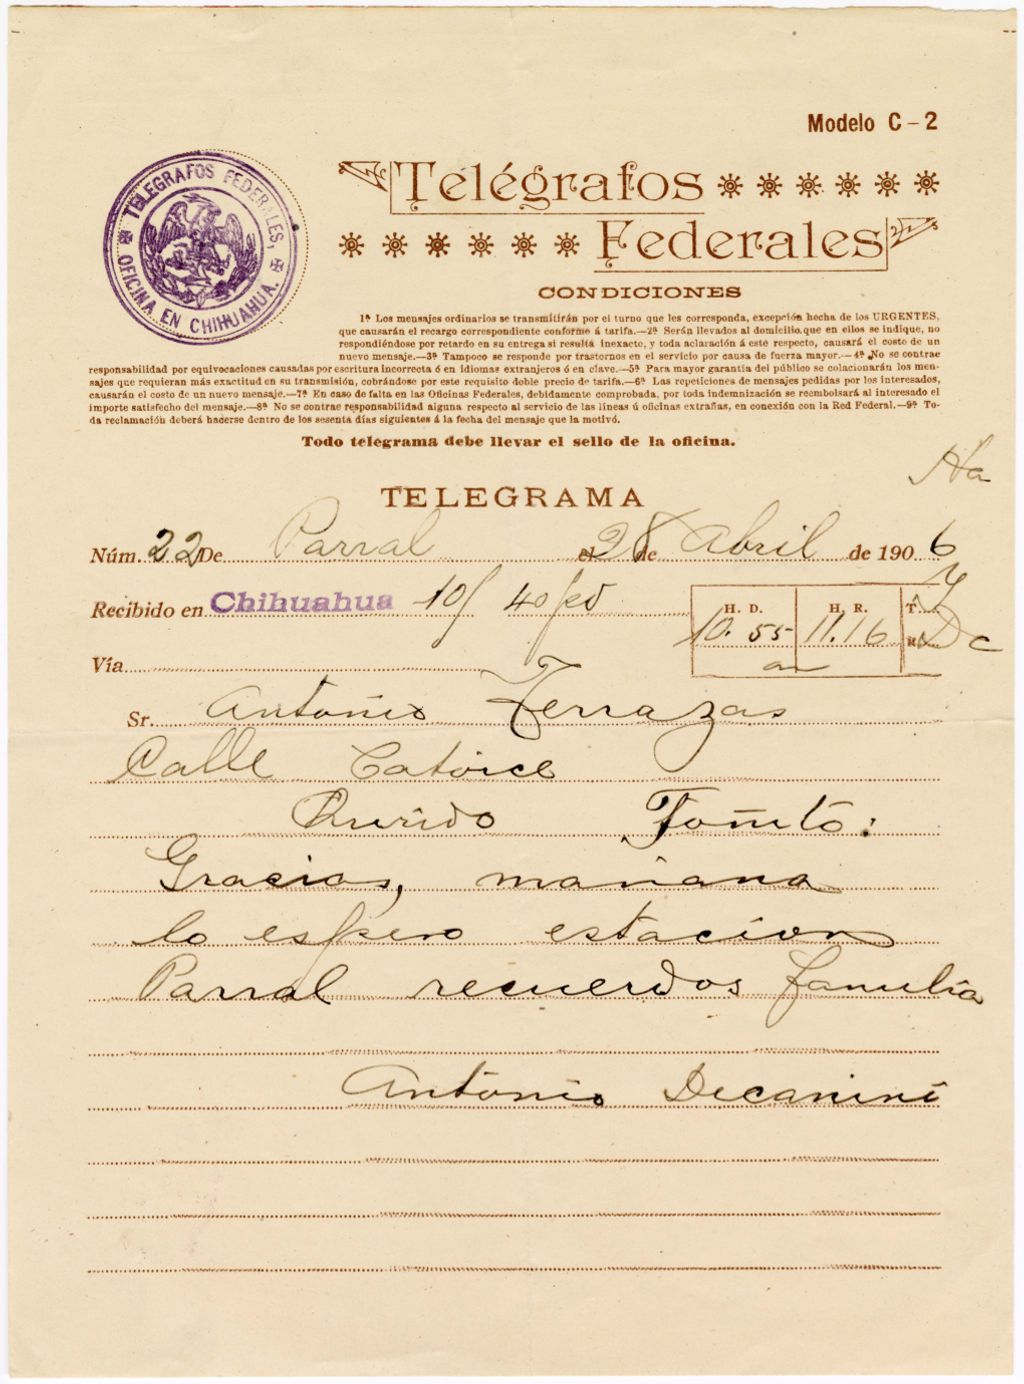 Modelo C-2
TELEGRAFOS FEDERALES,
OFICINA EN CHIHUAHUA.
Telégrafos
Federales
CONDICIONES
1ª Los mensajes ordinarios se transmitirán por el turno que les corresponda, excepción hecha de los URGENTES,
que causarán el recargo correspondiente conforme á tarifa.—2ª Serán llevados al domicilio que en ellos se indique, no
respondiéndose por retardo en su entrega si resulta inexacto, y toda aclaración á este respecto, causará el costo de un
nuevo mensaje.—3ª Tampoco se responde por trastornos en el servicio por causa de fuerza mayor.—4ª No se contrae
responsabilidad por equivocaciones causadas por escritura incorrecta ó en idiomas extranjeros ó en clave.—5ª Para mayor garantía del público se colacionarán los men-
sajes que requieran más exactitud en su transmisión, cobrándose por este requisito doble precio de tarifa.—6ª Las repeticiones de mensajes pedidas por los interesados,
causarán el costo de un nuevo mensaje.—7ª En caso de falta en las Oficinas Federales, debidamente comprobada, por toda indemnización se reembolsará al interesado el
importe satisfecho del mensaje.—8ª No se contrae responsabilidad alguna respecto al servicio de las líneas ú oficinas extrañas, en conexión con la Red Federal.—9ª To-
da reclamación deberá hacerse dentro de los sesenta días siguientes á la fecha del mensaje que la motivó.
Todo telegrama debe llevar el sello de la oficina.
TELEGRAMA
Núm. 22 De Parral el 28 de Abril de 1906
Recibido en Chihuahua 10/ 40/
H. D. H. R. T.
10.55 11.16 R.
Vía
Sr. Antonio Terrazas
Calle Catorce
Querido Toñito:
Gracias, mañana
lo espero estacion
Parral recuerdos familia
Antonio Decanini